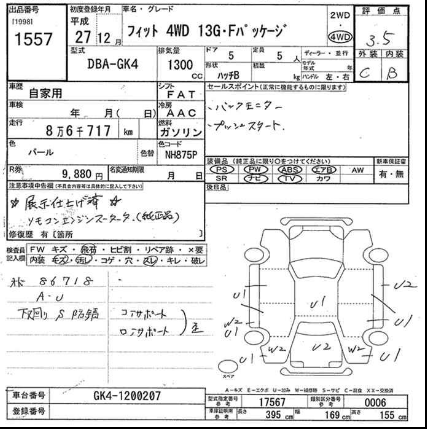 出品番号 [19981] 1557
初度登録年月 平成 27 年 12 月
車名・グレード フィット 4WD 13G・Fパッケージ
2WD ・ 4WD
評価点 3.5
型式 DBA-GK4
排気量 1300 CC
ドア 5 定員 5 人 ディーラー・並行
形状 ハッチB 積載 kg ハンドル 左・右
外装 C 内装 B
車歴 自家用
シフト FAT
セールスポイント(正常に機能するものに限ります)
車検 年 月 ( 日)
冷房 AAC
・バックモニター
走行 8万6千717 km
燃料 ガソリン
・プッシュスタート.
色 パール 色替
色コード NH875P
R券 9,880 円
名変期限 月 日
装備品(純正品に限り○をつけてください)
PS PW ABS エアB AW
SR ナビ TV カワ
新車保証書 有・無
注意事項申告欄
後日品
☆展示仕上げ済☆
リモコンエンジンスターター(純正品)
修復歴 有[箇所 ]
検査員記入欄 FW キズ・飛石・ヒビ割・リペア跡・×要
内装 キズ・汚レ・コゲ・穴・スレ・キレ・破レ
86718
A-U
下廻り S 防錆 コアサポート
ロアサポート
U1 U2 W2 U1 U1 U1 W2 U1 U1 W2 U2 W2
スペア
A-キズ E-エクボ U-凹み W-補修跡 S-サビ C-腐食 XX-交換済
車台番号 GK4-1200207
型式指定番号 17567 類別区分番号 0006
登録番号
長さ 395 cm 幅 169 cm 高さ 155 cm